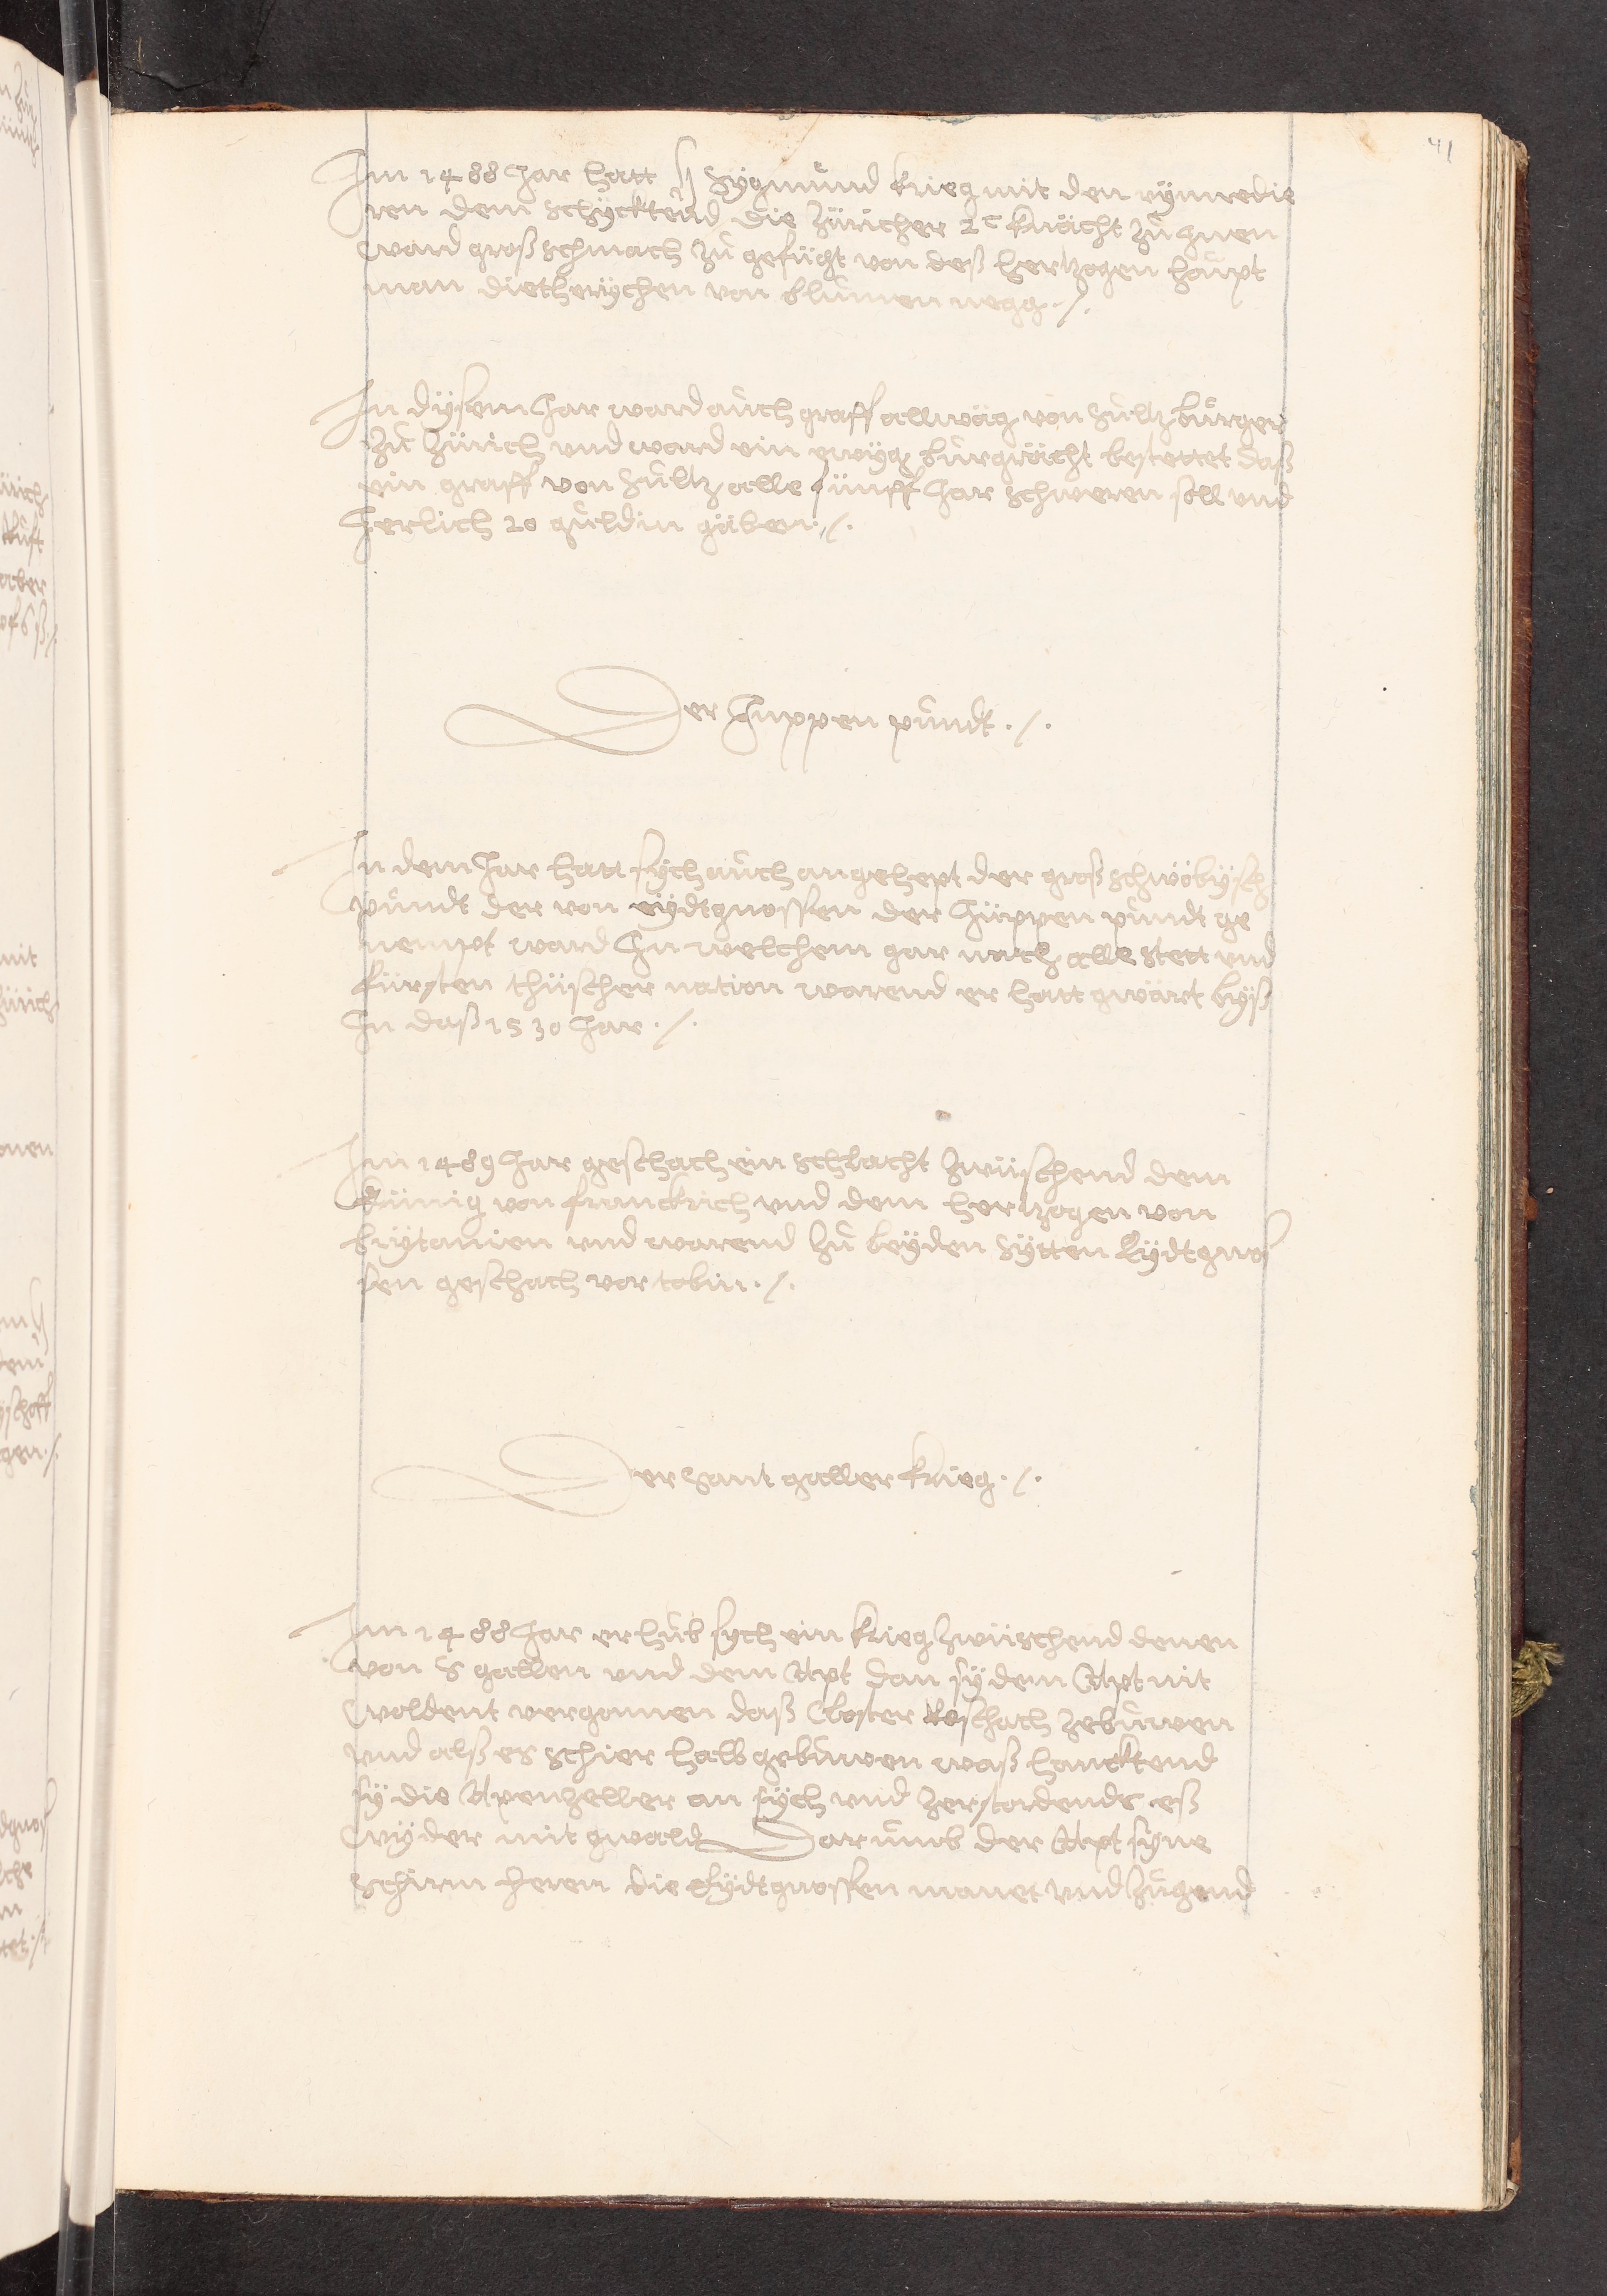 41
Im 1488 Jar hatt h Sygmund krieg mit den vynnedie
ren dem schycktend die Züricher 2c knächt zu Inen
ward groß schmach zu gefügt von deß hertzogen haupt
man dietherychen von blumen negg ./.
In dysem Jar ward auch graff allwäg von Sultz burger
zu Zürich und ward ein ewyg burgrächt bestettet daß
ein graff von Sultz alle fünff Jar schweren soll und
Jerlich 20 guldin gäben ./.
Der Juppen pundt ./.
In dem Jar hatt sych auch angehept der groß schwöbysch
pundt der von eydtgnossen der Jüppen pundt ge
nempt ward In welchem gar nach alle stett und
fürsten thüscher nation warend er hatt gwärt byß
In daß 1530 Jar ./.
Im 1489 Jar geschach ein schlacht zwüschend dem
künig von franckrich und dem hertzogen von
brytanien und warend zu beyden sytten Eydtgnos
sen geschach vor tobin ./.
Der Sant galler krieg ./.
Im 1488 Jar erhub sych ein krieg zwüschend denen
von S gallen und dem Apt dan sy dem Apt nit
woldent vergonnen daß Closter Roschach zebuwen
und alß es schier halb gebuwen waß hancktend
sy die Apenzeller an sych und zerstordends eß
wyder mit gwald Darumb der Apt syne
schirm heren die Eydtgnossen manet und zugend